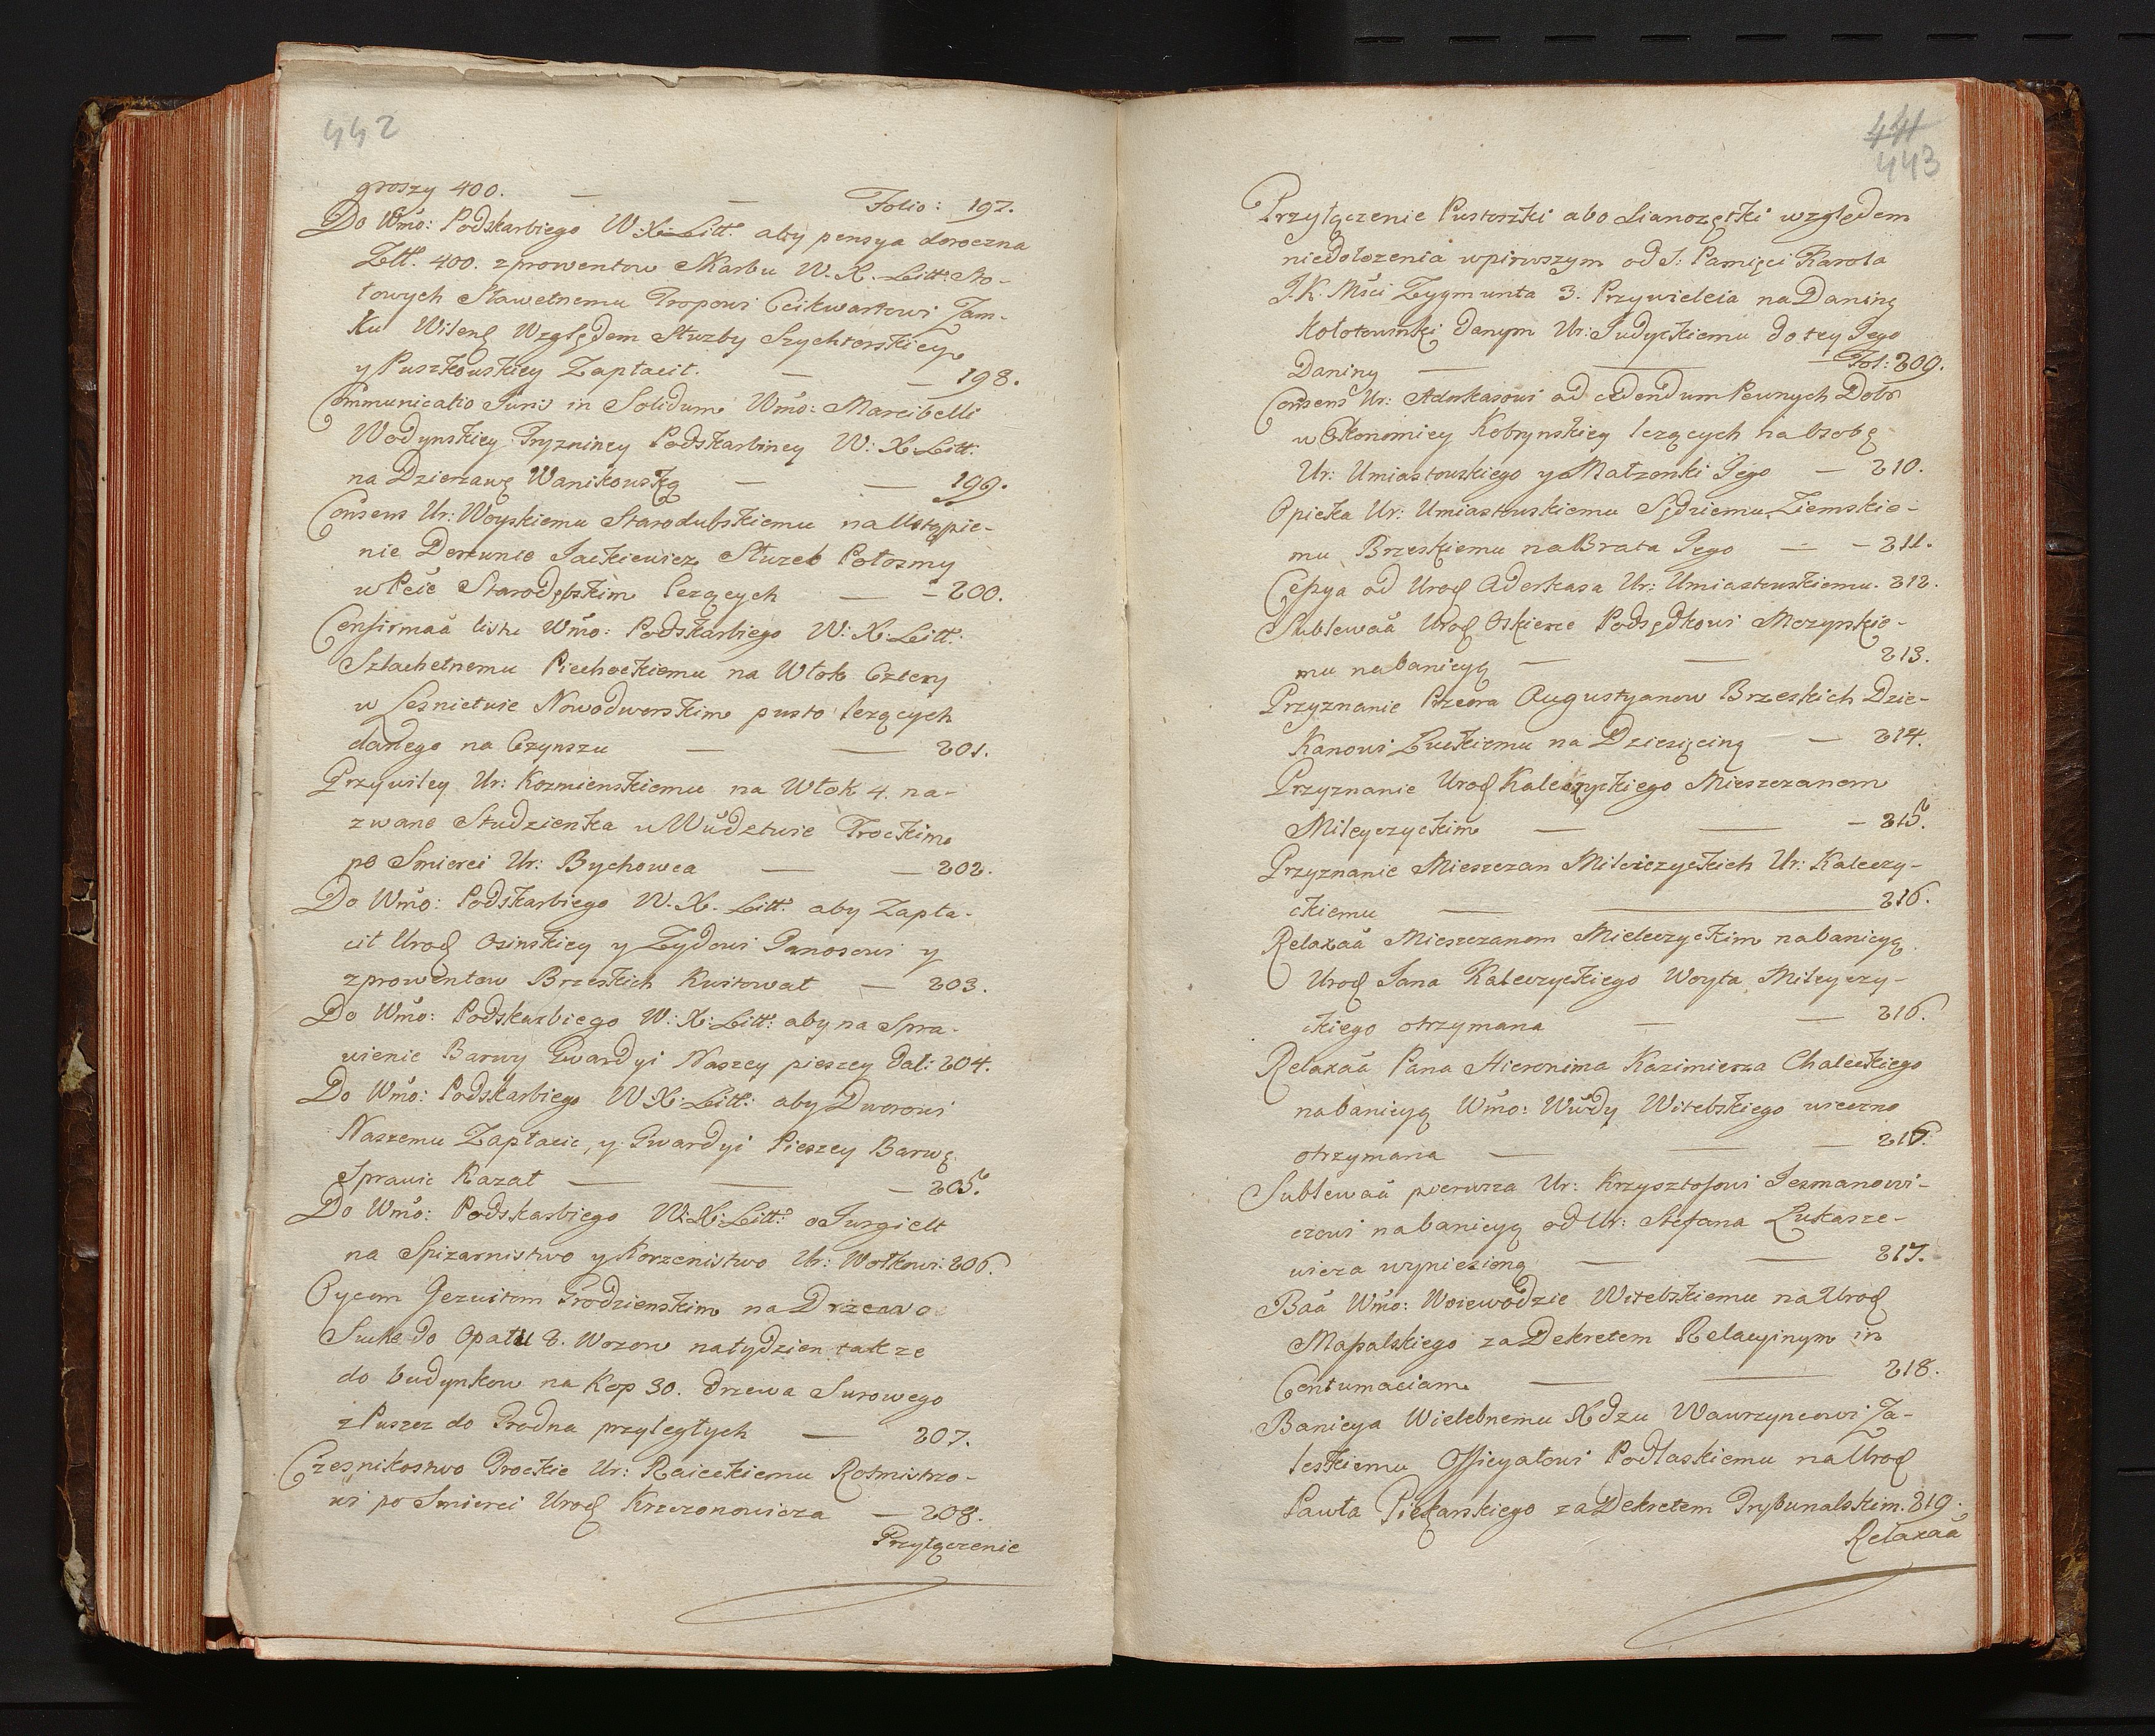 442
groszy 400. — — Folio: 197.
Do Wmo: Podskarbiego W. X. Litt: aby pensya doroczna
Złł. 400. z prowentow Skarbu W. X. Litt: Sto-
łowych Sławetnemu Propowi Ceikwartowi Zam-
ku Wileng Względem Służby Szychterskiey
y Puszkowskiey Zapłacił. — — 198.
Communicatio Juris in Solidum Wmo: Marcibelli
Wodynskiey Tryzniney Podskarbiney W: X. Litt:
na Dzierzawę Wanikowską — — 199.
Consens Ur: Woyskiemu Starodubskiemu na Ustąpie-
nie Derewnie Jackiewicz Służeb Połosmy
w Pcie Starodubskim lezących — — 200.
Confirmaā listu Wmo: Podskarbiego W: X: Litt:
Szlachetnemu Piechockiemu na Włok Cztery
w Lesnictwie Nowodworskim pusto lezących
danego na Czynszu — — 201.
Przywiley Ur: Kozmienskiemu na Włok 4. na-
zwane Studzienka w Wudztwie Trockim
po Smierci Ur: Bychowca — — 202.
Do Wmo: Podskarbiego W. X. Litt: aby Zapła-
cił Urod Osinskiey y Zydowi Panosowi y
z prowentow Brzeskich Kwitował — 203.
Do Wmo: Podskarbiego W: X: Litt: aby na Spra-
wienie Barwy Gwardyi Naszey pieszey dał: 204.
Do Wmo: Podskarbiego W. X: Litt: aby Dworowi
Naszemu Zapłacic, y Gwardyi Pieszey Barwę
Sprawic Kazał — — — 205.
Do Wmo: Podskarbiego W. X: Litt: o Jurgielt
na Spizarnistwo y Korzenistwo Ur: Wołkowi: 206.
Oycom Jezuitom Grodzienskim na Drzewo
Suche do Opału 8. Wozow na tydzien takze
do budynkow na Kop 30. drzewa Surowego
z Puszcz do Grodna przyległych — 207.
Czesnikostwo Trockie Ur: Raieckiemu Rotmistrzo-
wi po Smierci Urod Krzczonowicza — 208.
Przyłączenie
441
443
Przyłączenie Pustoszki abo Sianozęłki względem
niedołozenia w pirwszym od S: Pamięci Karola
J. K. Msci Zygmunta 3. Przywileia na Daninę
Kołotowinki danym Ur: Judyckiemu do tey Jego
Daniny — — Fol: 209.
Consens Ur: Aderkasowi ad cedendum Pewnych Dobr
w Ekonomiey Kobrynskiey lezących na Osobę
Ur: Umiastowskiego y Małzonki Jego — 210.
Opieka Ur: Umiastowskiemu Sędziemu Ziemskie-
mu Brzeskiemu na Brata Jego — — 211.
Cessya od Urod Aderkasa Ur: Umiastowskiemu. 212.
Sublewaā Urod Oskierce Podsędkowi Mozyrskie-
mu na banicyą — — 213.
Przyznanie Przeora Augustyanow Brzeskich Dzie-
kanowi Łuckiemu na Dziesięcinę — 214.
Przyznanie Urod Kaleczyckiego Mieszczanom
Mileyczyckim — — — 215.
Przyznanie Mieszczan Mileiczyckich Ur: Kaleczy-
ckiemu — — 216.
Relaxaā Mieszczanom Mieleczyckim na banicyą
Urod Jana Kaleczyckiego Woyta Mileyczy-
ckiego otrzymana — — 216.
Relaxaā Pana Hieronima Kazimierza Chaleckiego
na banicyą Wmo: Wwdy Witebskiego wieczno
otrzymana — — — 216.
Sublewaā pierwsza Ur: Krzysztofowi Jesmanowi-
czowi na banicyą od Ur: Stefana Łukasze-
wicza wyniesioną — — 217.
Baā Wmo: Woiewodzie Witebskiemu na Urod
Massalskiego za Dekretem Relacyinym in
Contumaciam — — 218.
Banicya Wielebnemu Xdzu Wawrzyncowi Za-
leskiemu Officyałowi Podlaskiemu na Urod
Pawła Piekarskiego za Dekretem Trybunalskim. 219.
Relaxaā